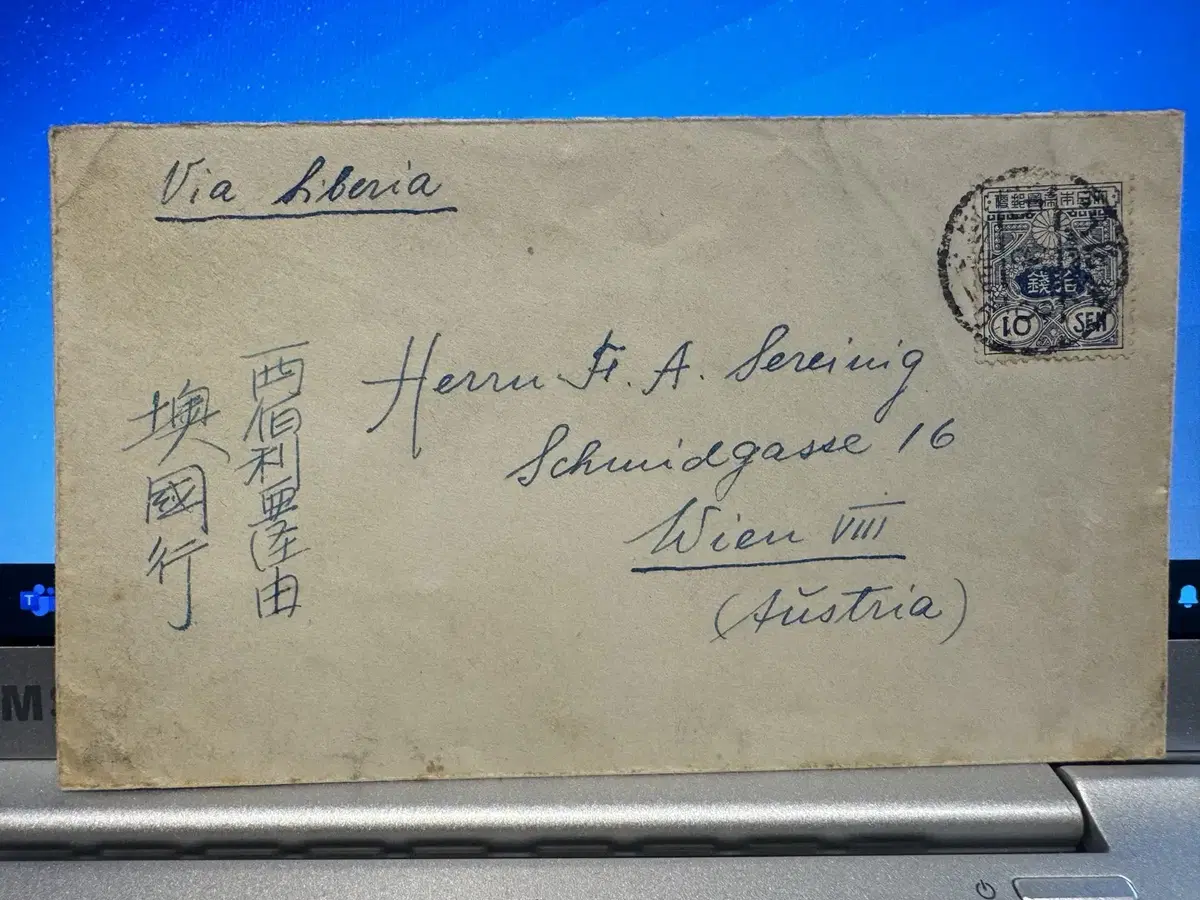 Via Siberia
大日本帝國郵便
拾錢
10 SEN
Herrn Fr. A. Sereinig
Schmidgasse 16
Wien VIII
(Aŭstria)
西伯利亜経由
墺國行